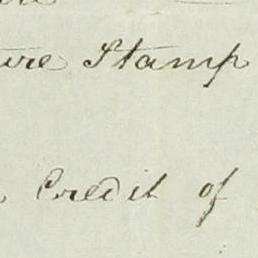 Stamp
Credit of